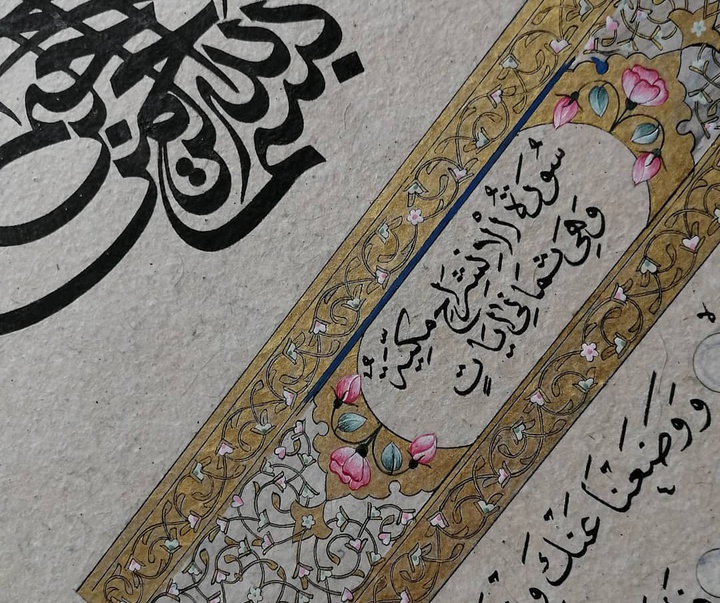 بسم الله الرحمن
سُورَةُ الْاِنْشِرَاحِ مَكِّيَّةٌ
وَهِيَ ثَمَانِي اٰيَاتٍ
وَوَضَعْنَا عَنْكَ